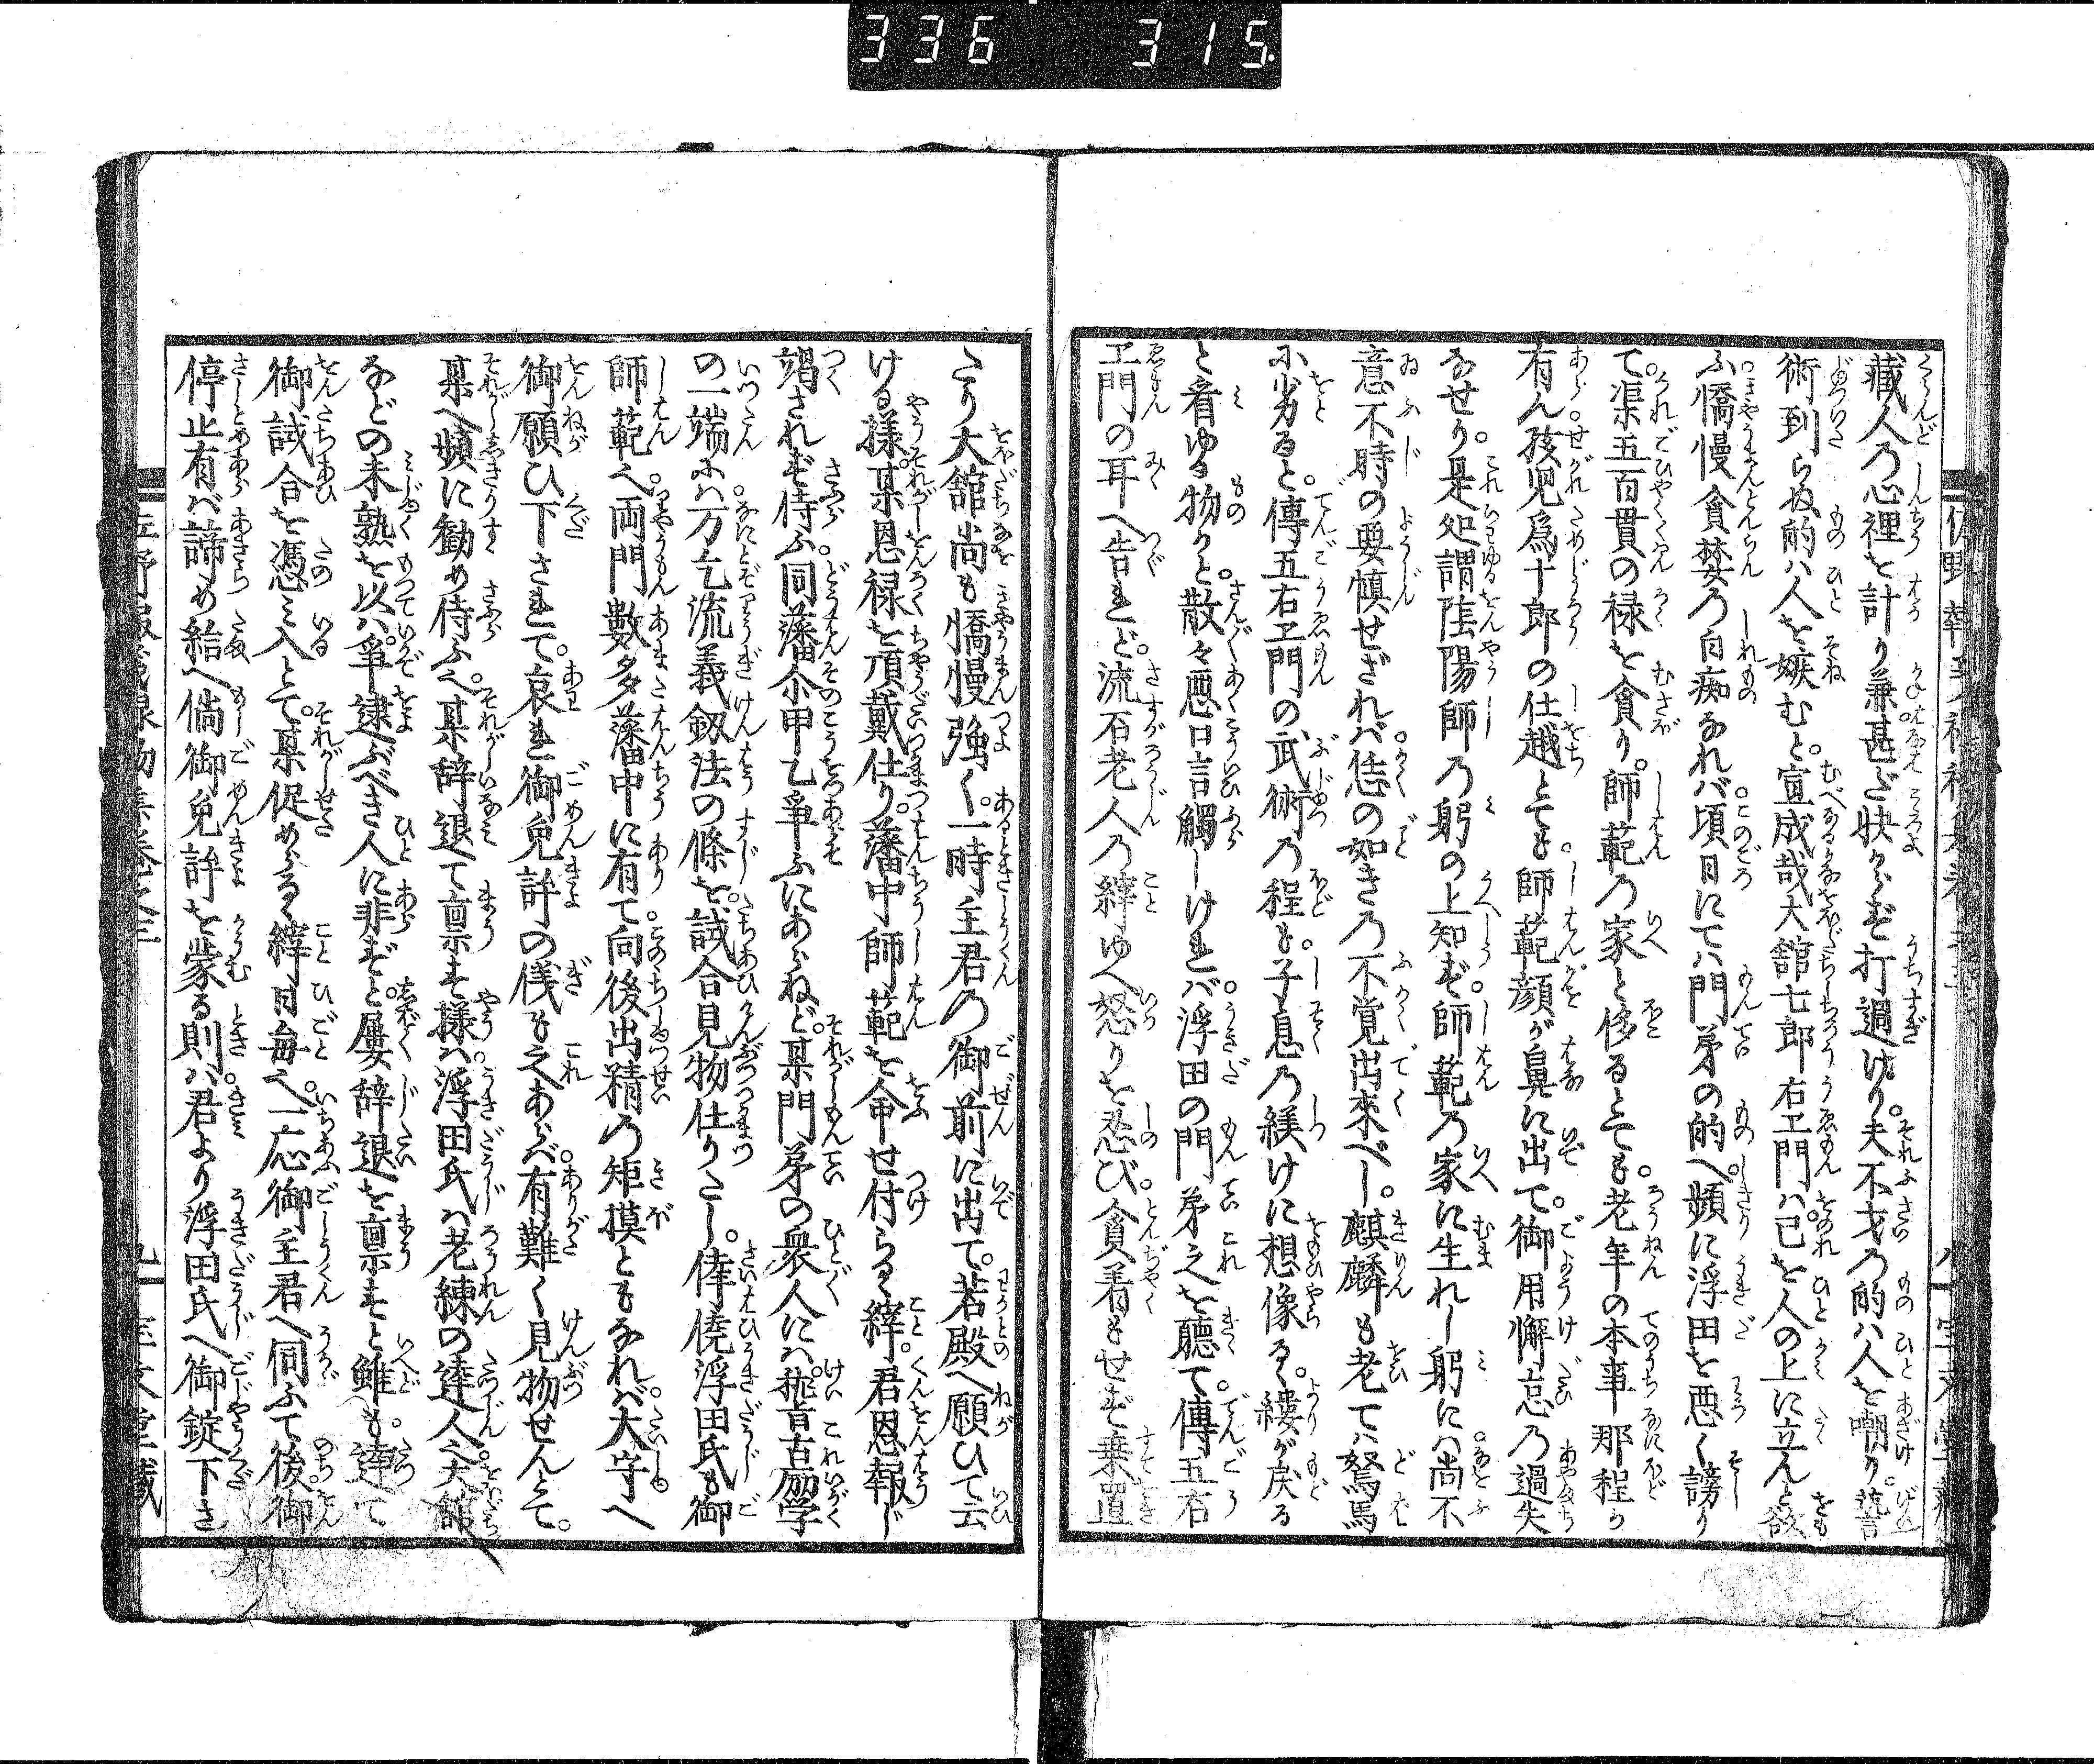 336 315
藏人乃心裡を計り兼甚ざ快からず打過けり。夫不才乃的ハ人を嘲り。藝
術到らぬ的ハ人を嫉むと。宜成哉大舘七郎右エ門ハ己を人の上に立んと欲
ふ。憍慢貪婪乃白痴なれバ。頃日にてハ門弟の的へ頻に浮田を悪く謗り
て。渠五百貫の禄を貪り。師範乃家と侈るとても。老年の本事那程か
有ん。孩児爲十郎の仕越とても。師範顔が鼻に出て。御用懈怠乃過失
なせり。是処謂陰陽師乃躬の上知ず。師範乃家に生れし躬にハ尚不
意不時の要慎せざれバ。恁の如き乃不覚出來べし。麒麟も老てハ駑馬
ふ劣ると。傳五右エ門の武術乃程も。子息乃䙝けに想像る。縷が戻る
と看ゆる物かと。散々悪口言觸しけれバ。浮田の門弟之を聽て。傳五右
エ門の耳へ告れど。流石老人乃縡ゆへ怒りを忍び。貪着もせず棄置
たり大舘尚も憍慢強く。一時主君乃御前に出て。若殿へ願ひて云
ける様。某恩禄を頂戴仕り。藩中師範を命せ付らるゝ縡。君恩報じ
竭されず侍ふ。同藩尒甲乙爭ふにあらねど。某門弟の衆人にハ。稽古励学
の一端ふハ。万乞流義釼法の條を。試合見物仕りたし。倖僥浮田氏も御
師範へ。両門數多藩中に有て。向後出精乃矩摸ともなれバ。大守へ
御願ひ下されて。哀れ御免許の儀も之あらバ。有難く見物せんとて。
某へ頻に勧め侍ふへ。某辞退て稟す様ハ。浮田氏ハ老練の達人へ。大舘
などの未熟を以ハ。爭逮ぶべき人に非ずと。屢辞退を稟すと雖も。達て
御試合を憑み入とて。某促めらるゝ縡日毎へ。一応御主君へ伺ふて後。御
停止有バ諦め給へ倘御免許を蒙る則ハ。君より浮田氏へ御錠下さ